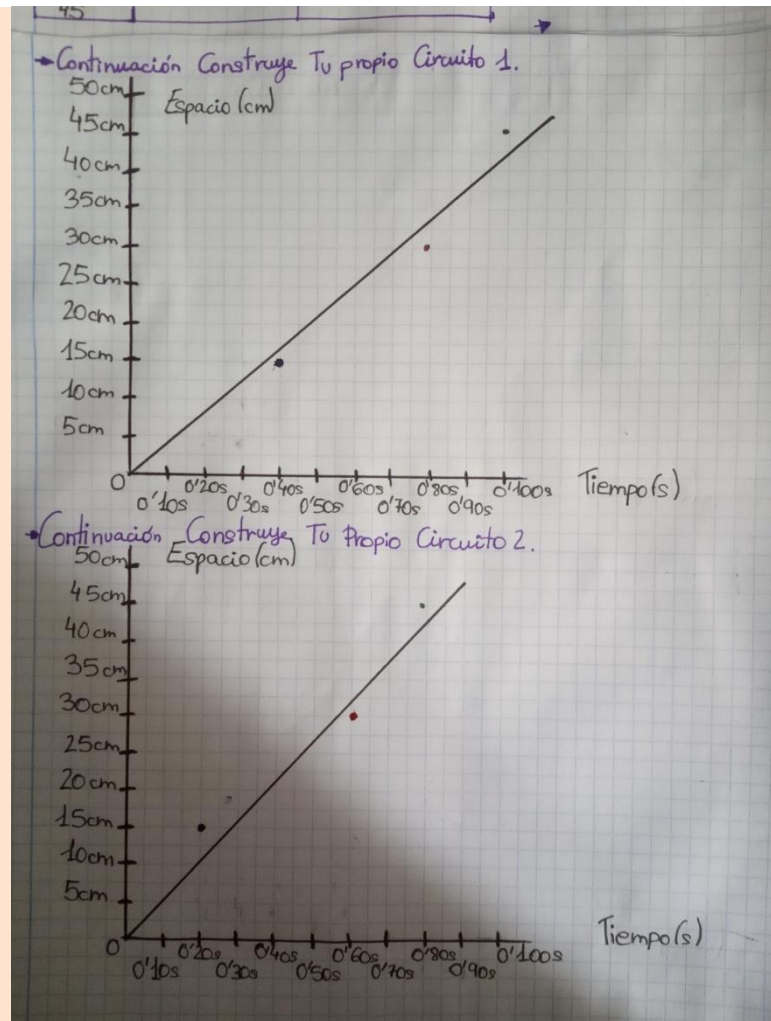 45
→Continuación Construye Tu propio Circuito 1.
50cm
Espacio (cm)
45cm
40cm
35cm
30cm
25cm
20cm
15cm
10cm
5cm
0
0'10s 0'20s 0'30s 0'40s 0'50s 0'60s 0'70s 0'80s 0'90s 0'100s Tiempo(s)
→Continuación Construye Tu Propio Circuito 2.
50cm
Espacio (cm)
45cm
40cm
35cm
30cm
25cm
20cm
15cm
10cm
5cm
0
0'10s 0'20s 0'30s 0'40s 0'50s 0'60s 0'70s 0'80s 0'90s 0'100s Tiempo(s)